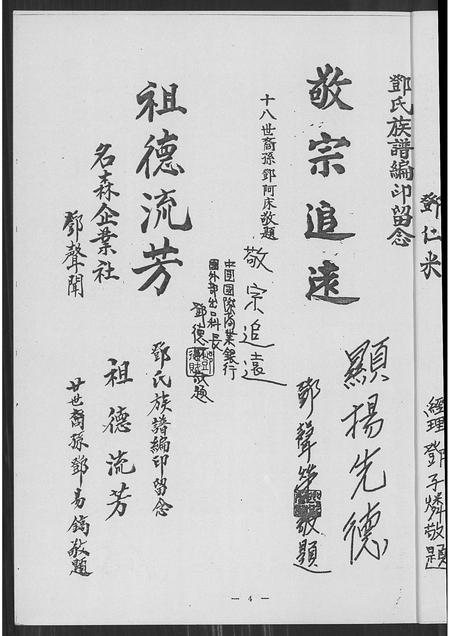 鄧仁米
經理鄧子燐敬題
鄧氏族譜編印留念
敬宗追遠
十八世裔孫鄧阿床敬題
顯揚先德
鄧聲
敬題
敬宗追遠
中國國際商業銀行
國外部出口科長
鄧德
敬題
祖德流芳
名森企業社
鄧聲聞
鄧氏族譜編印留念
祖德流芳
廿世裔孫鄧易鏑敬題
— 4 —